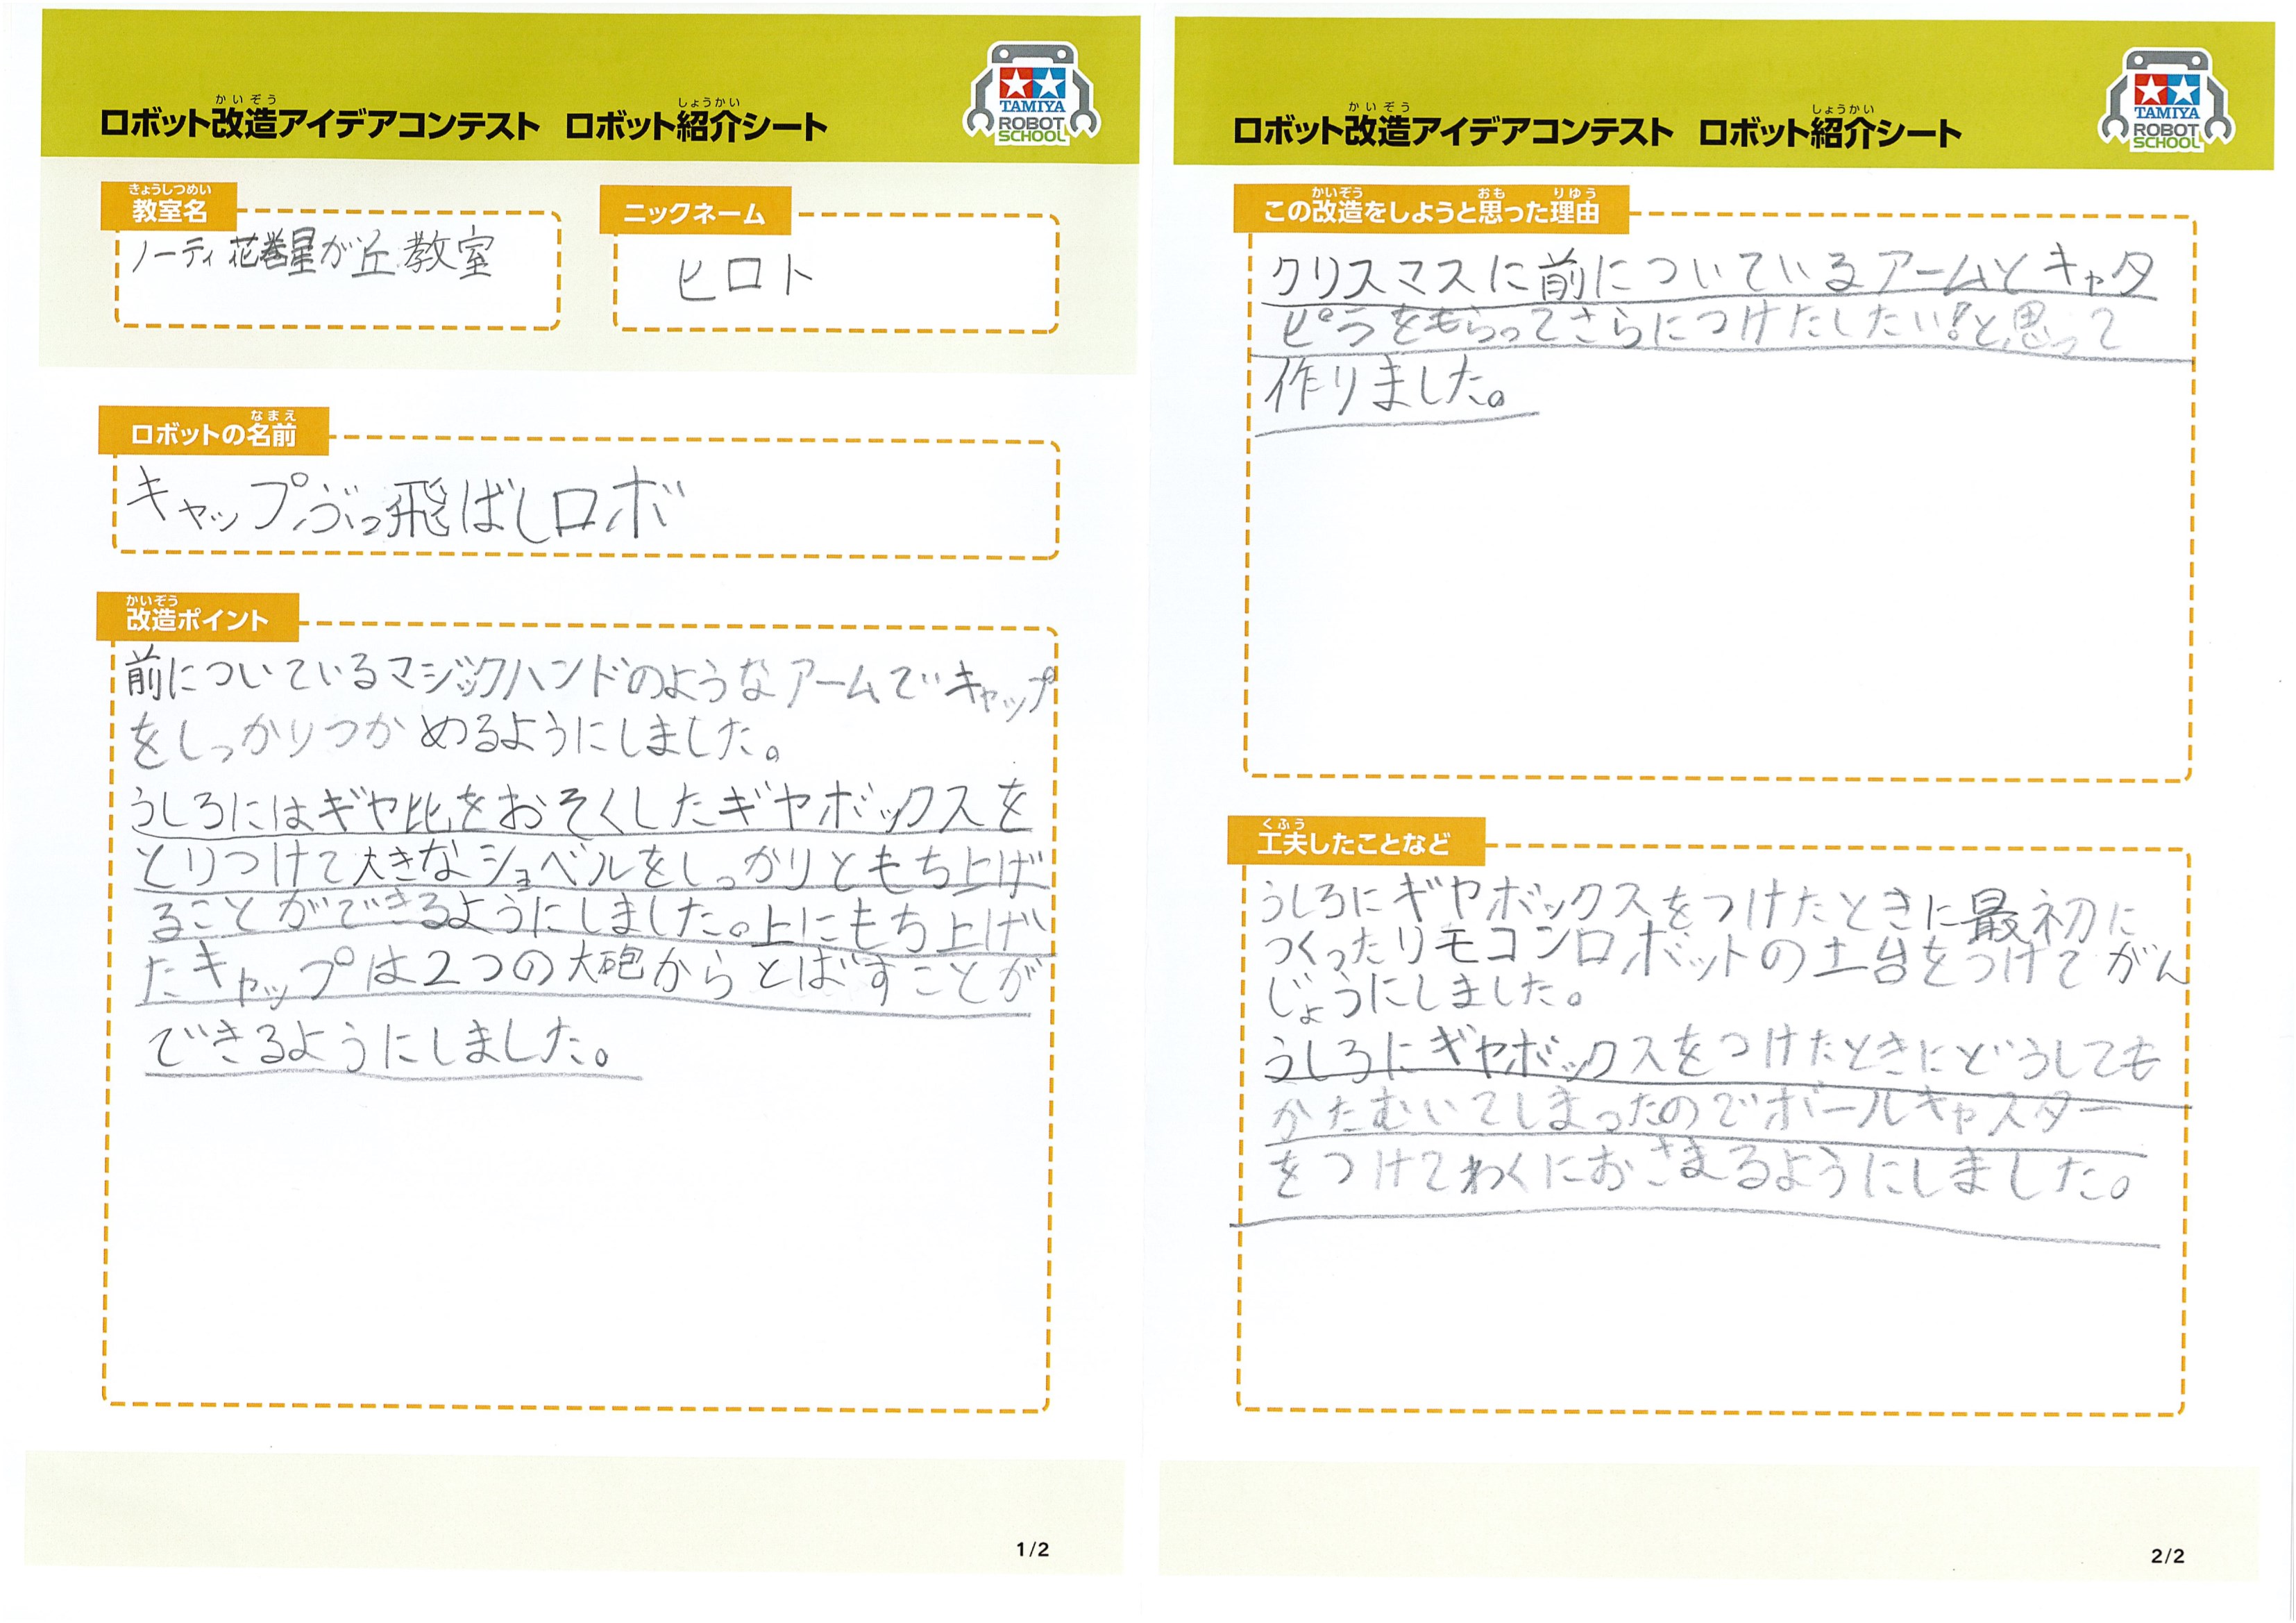 かいぞう しょうかい
ロボット改造アイデアコンテスト ロボット紹介シート
TAMIYA
ROBOT
SCHOOL
きょうしつめい
教室名
ノーティ花巻星が丘教室
ニックネーム
ヒロト
なまえ
ロボットの名前
キャップぶっ飛ばしロボ
かいぞう
改造ポイント
前についているマジックハンドのようなアームでキャップ
をしっかりつかめるようにしました。
うしろにはギヤ比をおそくしたギヤボックスを
とりつけて大きなショベルをしっかりともち上げ
ることができるようにしました。上にもち上げ
たキャップは2つの大砲からとばすことが
できるようにしました。
1/2
かいぞう しょうかい
ロボット改造アイデアコンテスト ロボット紹介シート
TAMIYA
ROBOT
SCHOOL
かいぞう おも りゆう
この改造をしようと思った理由
クリスマスに前についているアームとキャタ
ピラをもらってさらにつけたしたい!と思って
作りました。
くふう
工夫したことなど
うしろにギヤボックスをつけたときに最初に
つくったリモコンロボットの土台をつけてがん
じょうにしました。
うしろにギヤボックスをつけたときにどうしても
かたむいてしまったのでボールキャスター
をつけてわくにおさまるようにしました。
2/2